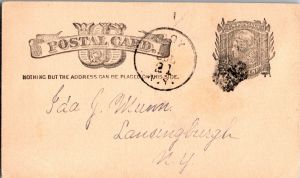 POSTAL CARD.
NOTHING BUT THE ADDRESS CAN BE PLACED ON THIS SIDE.
21
Ida G. Munn.
Lansingburgh
N.Y.